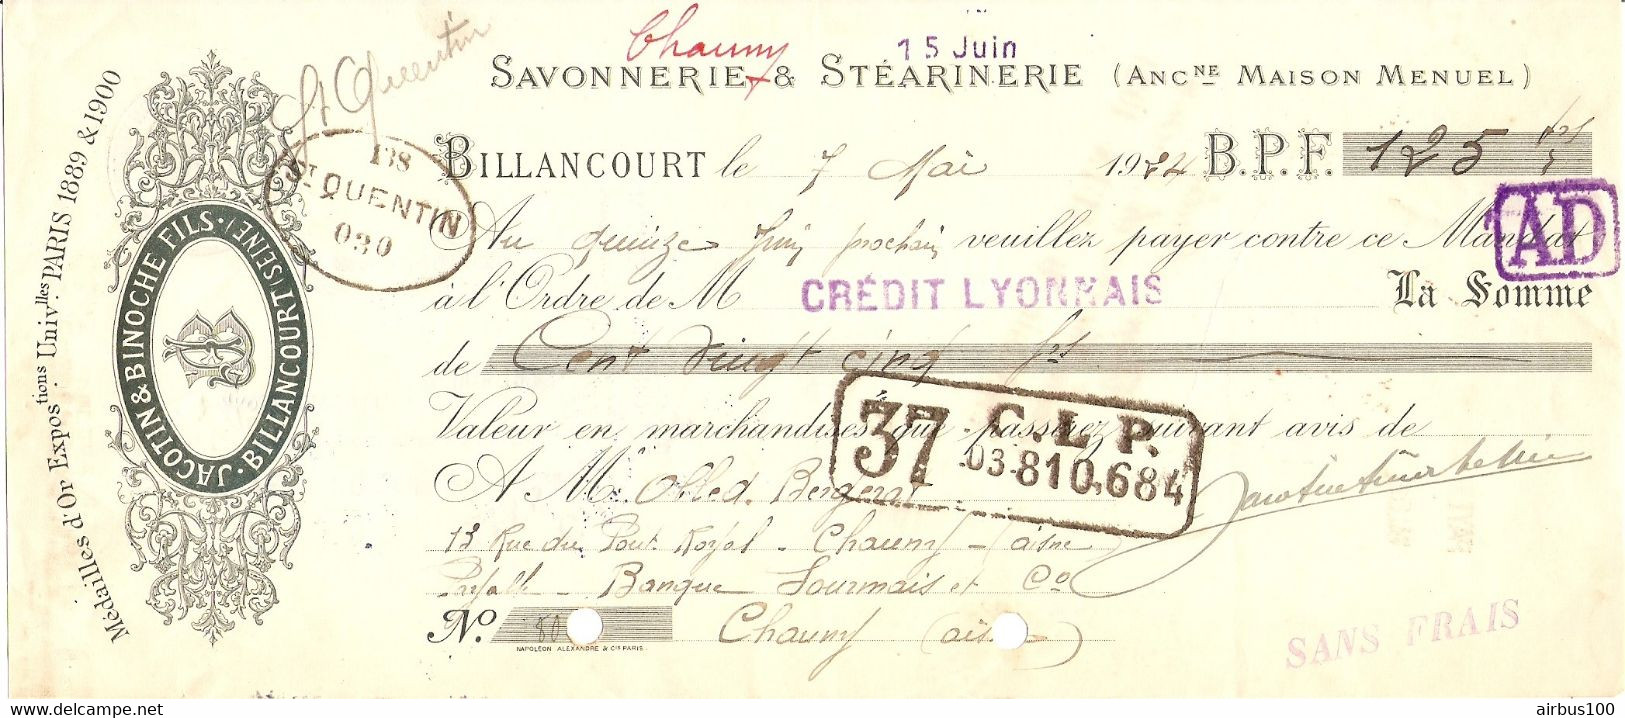 Chauny
15 Juin
St Quentin
SAVONNERIE & STÉARINERIE (ANCNE MAISON MENUEL)
Médailles d'Or Expositions Univlles PARIS 1889 & 1900
JACOTIN & BINOCHE FILS · BILLANCOURT (SEINE) ·
138
ST QUENTIN
030
BILLANCOURT le 7 Mai 1924 B.P.F. 125 frs
AD
Au quinze Juin prochain veuillez payer contre ce Mandat
à l'Ordre de M CRÉDIT LYONNAIS La Somme
de Cent Vingt cinq frs
Valeur en marchandises que passerez suivant avis de
37 C.L.P.
03-810,684
A Mr Obled. Bergerat
13 Rue du Pont Royal - Chauny - (aisne
Banque et Co
No. 80 Chauny (aisne)
NAPOLÉON ALEXANDRE & CIE PARIS.
SANS FRAIS
delcampe.net
airbus100